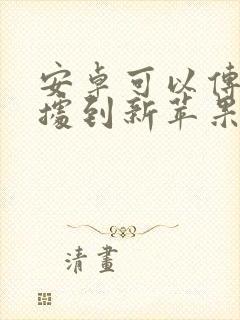 安卓可以傳
據到新苹果
清畫